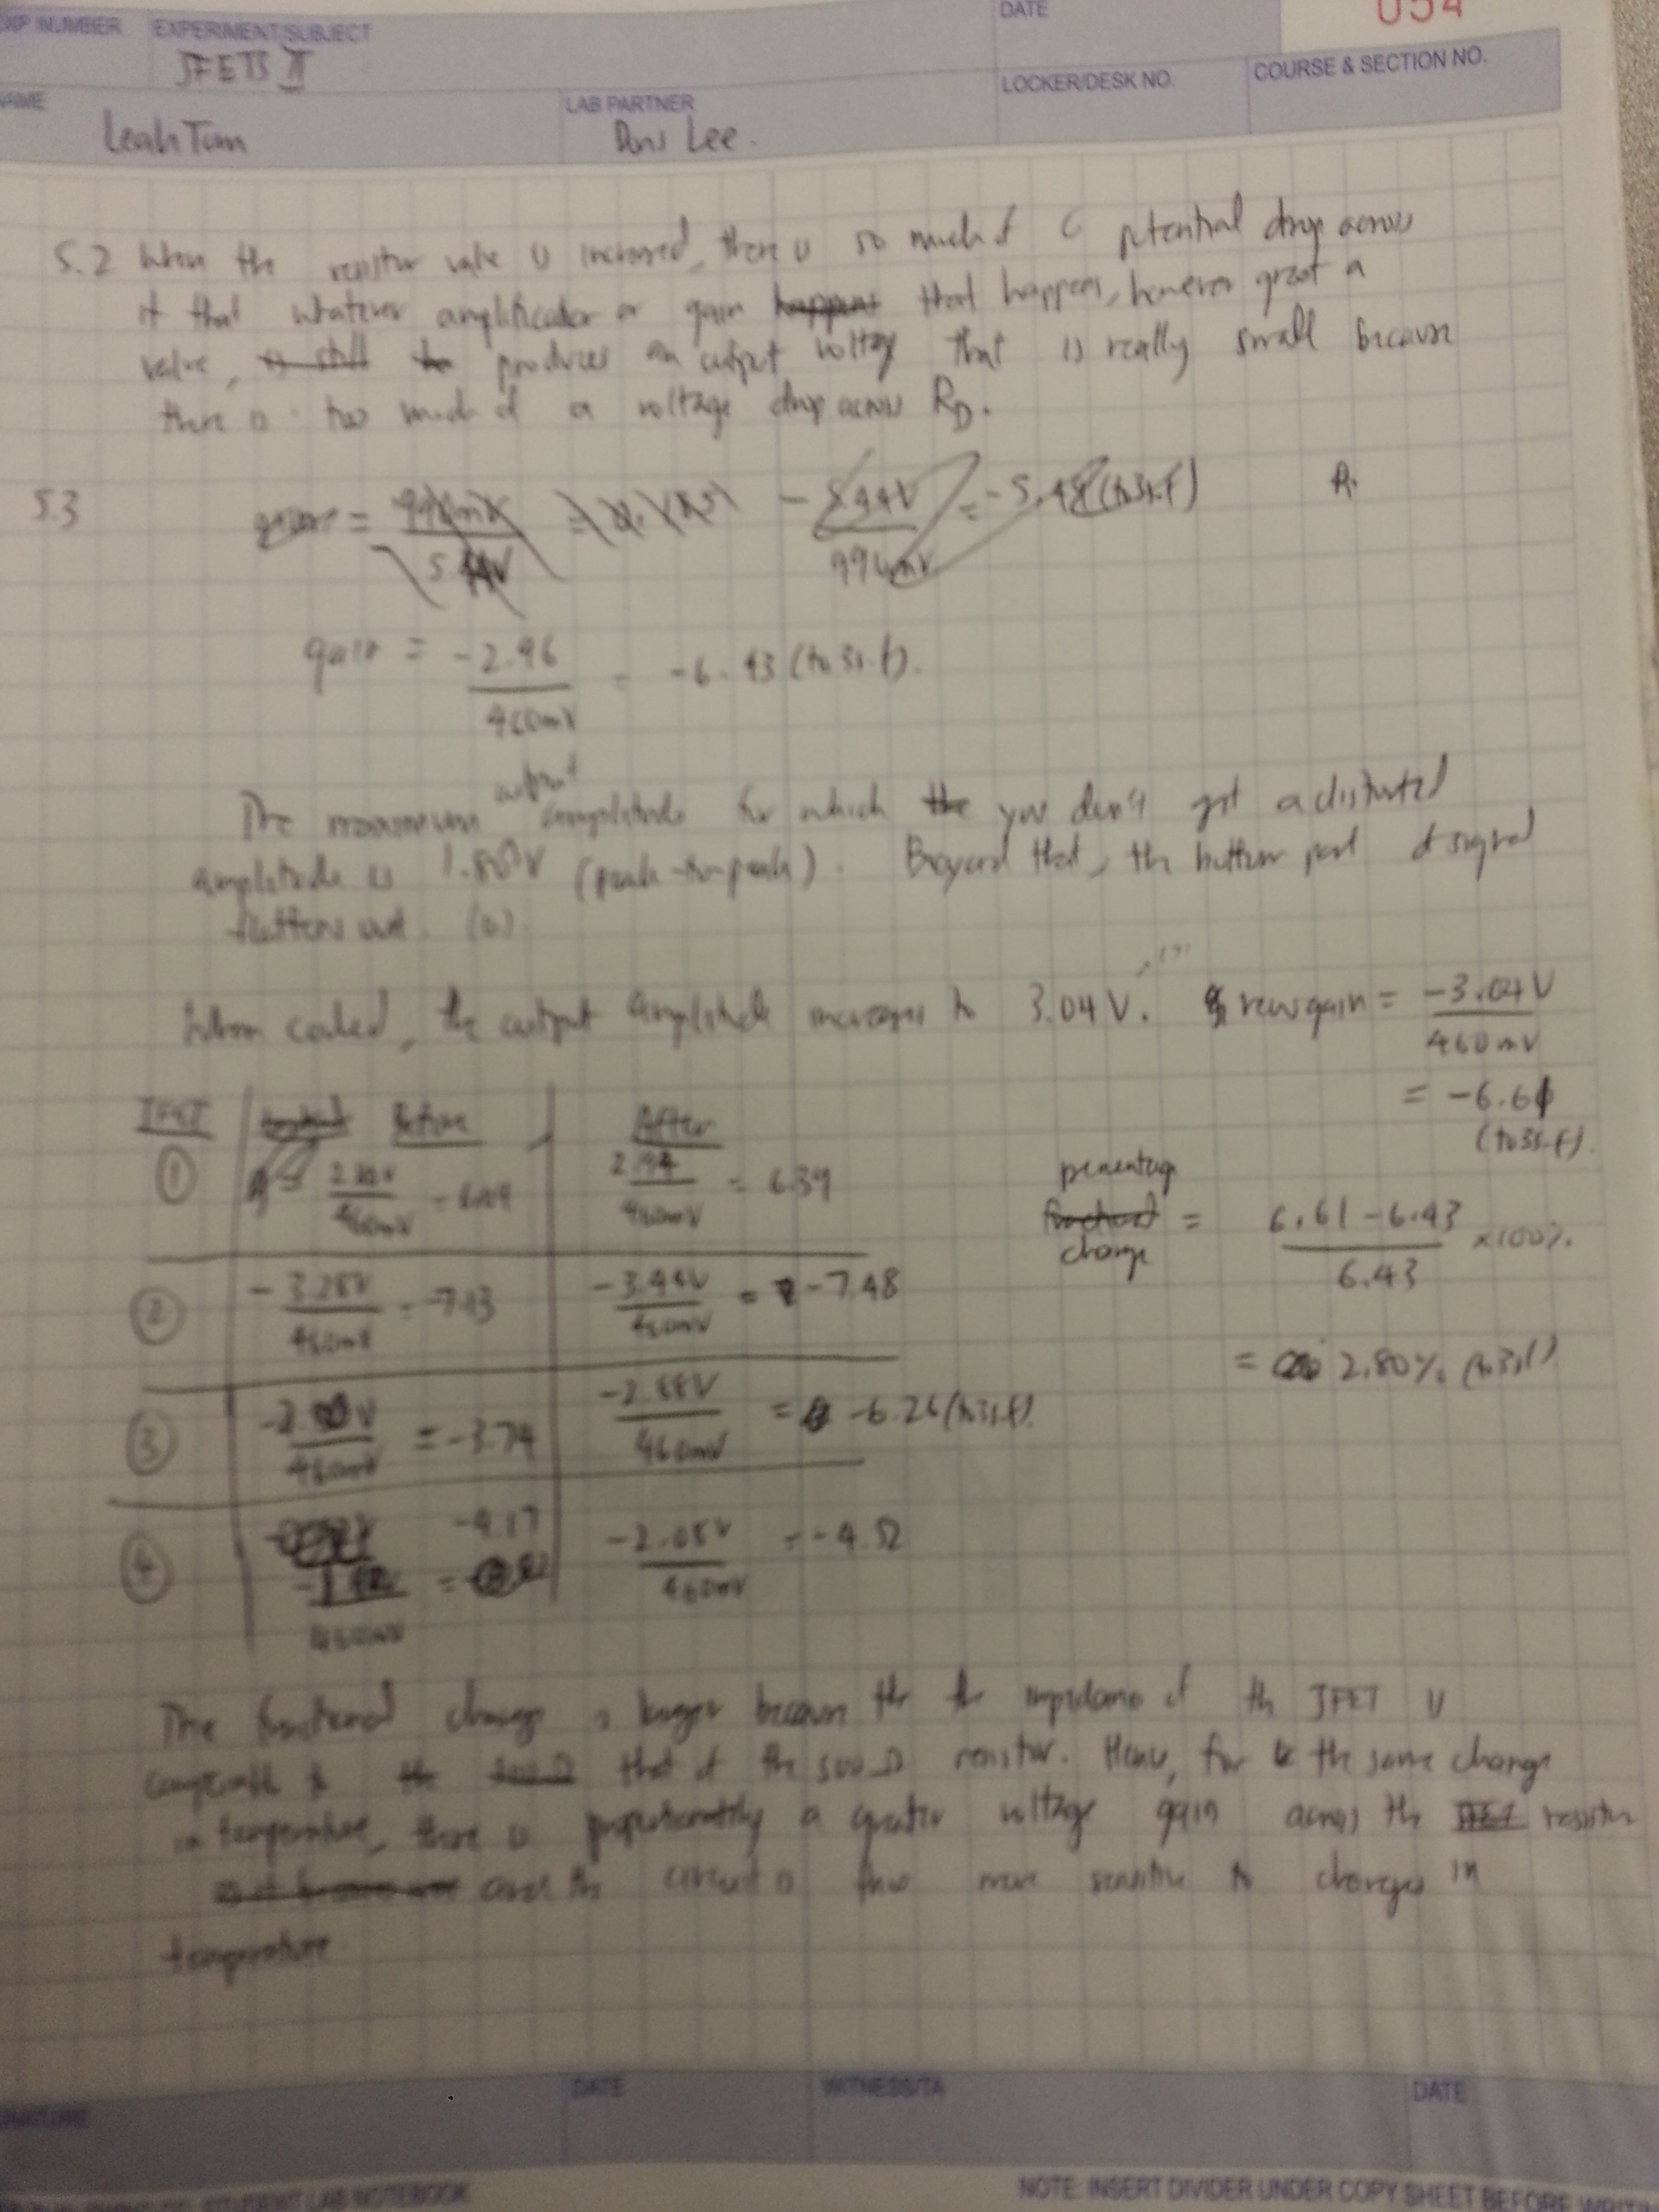 EXP NUMBER EXPERIMENT/SUBJECT DATE 054
JFETS II
LOCKER/DESK NO. COURSE & SECTION NO.
NAME LAB PARTNER
Leah Tom Lee.
5.2 When the resistor value is increased, there is so much of a potential drop across
it that whatever amplification or gain happens that happens, however great a
value, is still produces an output voltage that is really small because
there is too much of a voltage drop across RD.
5.3 gain = - 5.44V / 994mV = -5.48 (to 3s.f)
gain = -2.96 / 460mV = -6.43 (to 3s.f).
output
The maximum amplitude for which the you don't get a distorted
amplitude is 1.80V (peak-to-peak). Beyond that, the bottom part of signal
flattens out.
When cooled, the output amplitude increases to 3.04V. new gain = -3.04V / 460mV
= -6.61
(to 3s.f).
JFET Before After
① 460mV 2.94 / 460mV = 6.39
percentage
functional change = 6.61-6.43 / 6.43 ×100%.
② -3.28V / 460mV = -7.13 -3.44V / 460mV = -7.48
= 2.80% (to 3s.f)
③ / 460mV = -3.74 -2.88V / 460mV = -6.26 (to 3s.f).
④ / 460mV = -4.17 -2.08V / 460mV = -4.52
The functional change is larger because the the impedance of the JFET is
comparable to the that of the 500Ω resistor. Hence, for the same change
in temperature, there is proportionately a greater voltage gain across the JFET resistor
and the circuit is thus more sensitive to changes in
temperature
SIGNATURE DATE WITNESS/TA DATE
STUDENT LAB NOTEBOOK NOTE: INSERT DIVIDER UNDER COPY SHEET BEFORE WRITIN